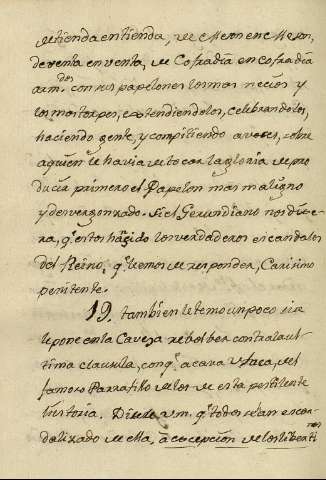 de tienda en tienda, de Meson en Meson,
de venta en venta, de Cofradia en cofradia
arm.dos con sus papelones los mas necios y
los mas torpes, estendiendolos, celebrandolos,
haciendo gente, y compitiendo a voces, sobre
a quien le havia de tocar la gloria de pro
ducir primero el Papelon mas maligno
y desvergonzado. Si el Gerundiano nos dije
ra, q.e estos hã sido los verdaderos escandalos
del Reino, q.e le emos de responder, Carisimo
penitente.
19, tambien le temo un poco si se
le pone en la Caveza rebolber contra la ul-
tima clausula, con q.e acava Usaca, del
famoso Parrafillo de los de esta pestilente
historia. Dicele vm. q.e todos se an escan
dalizado de ella, a ecepcion de los liberti
nos